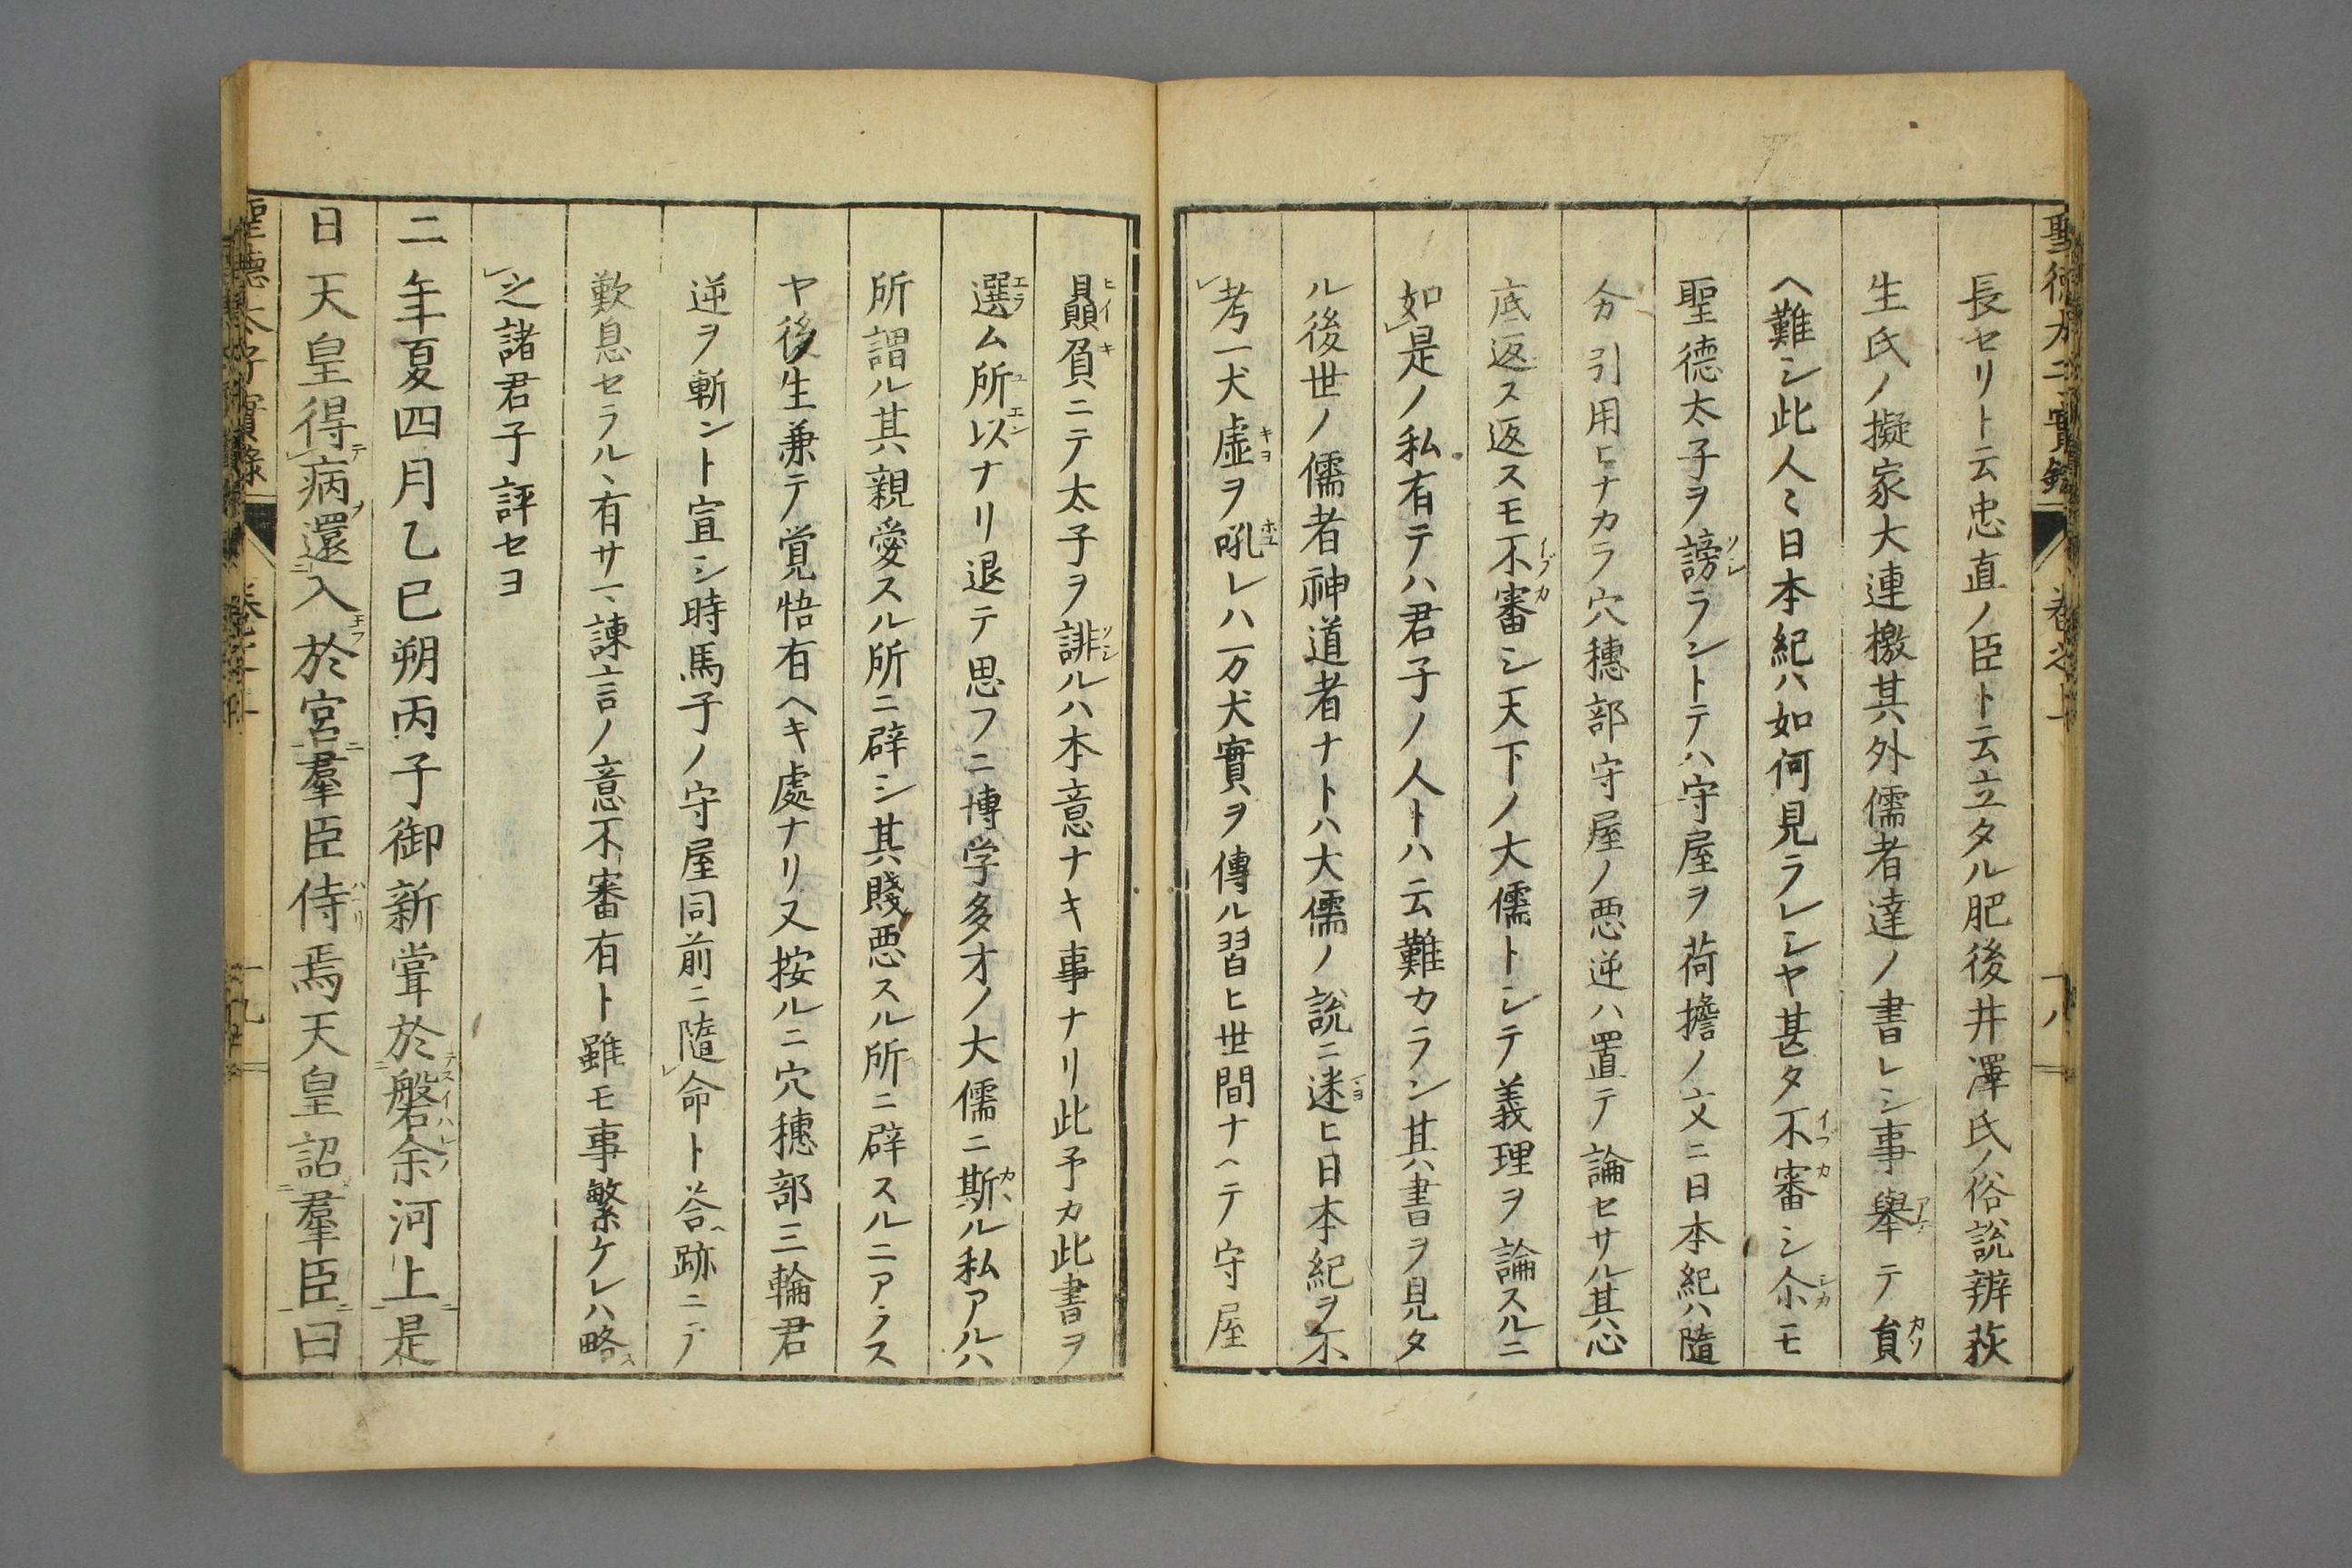 長セリト云忠直ノ臣ト云立タル肥後井澤氏ノ俗說辨荻
生氏ノ擬家大連檄其外儒者達ノ書レシ事舉テ員
ヘ難シ此人〻日本紀ハ如何見ラレシヤ甚タ不審シ尒モ
聖德太子ヲ謗ラントテハ守屋ヲ荷擔ノ文ニ日本紀ハ隨
分引用ヒナカラ穴穗部守屋ノ悪逆ハ置テ論セサル其心
底返ス返スモ不審シ天下ノ大儒トシテ義理ヲ論スルニ
如是ノ私有テハ君子ノ人トハ云難カラン其書ヲ見タ
ル後世ノ儒者神道者ナトハ大儒ノ說ニ迷ヒ日本紀ヲ不
考一犬虛ヲ吼レハ万犬實ヲ傳ル習ヒ世間ナヘテ守屋
贔負ニテ太子ヲ誹ルハ本意ナキ事ナリ此予カ此書ヲ
選ム所以ナリ退テ思フニ博学多才ノ大儒ニ斯ル私アルハ
所謂ル其親愛スル所ニ辟シ其賤悪スル所ニ辟スルニアラス
ヤ後生兼テ覚悟有ヘキ處ナリ又按ルニ穴穗部三輪君
逆ヲ斬ント宣シ時馬子ノ守屋同前ニ隨命ト荅ヘ跡ニテ
歎息セラル丶有サマ諫言ノ意不審有ト雖モ事繁ケレハ略ス
之諸君子評セヨ
二年夏四月乙巳朔丙子御新甞於磐余河上是
日天皇得病還入於宮羣臣侍焉天皇詔羣臣曰